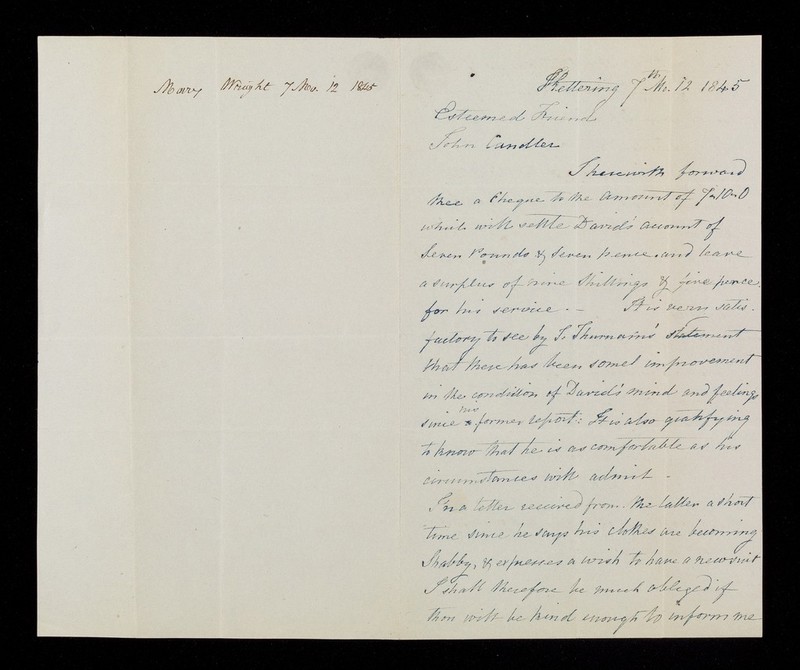 Mary Wright 7 Mo. 12 1845
Kettering 7th Mo. 12 1845
Esteemed Friend
John Candler
I herewith forward
thee a Cheque to the amount of 7,,10,,0
which will settle David's account of
Seven Pounds & Seven pence, and leave
a surplus of nine Shillings & five pence
for his service. - It is very satis-
factory to see by J. Thurnam's statement
that there has been some improvement
in the condition of David's mind and feelings
since his former report: It is also gratifying
to know that he is as comfortable as his
circumstances will admit -
In a letter received from the latter a short
time since he says his clothes are becoming
Shabby, & expresses a wish to have a new suit
I shall therefore be much obliged if
thou will be kind enough to inform me